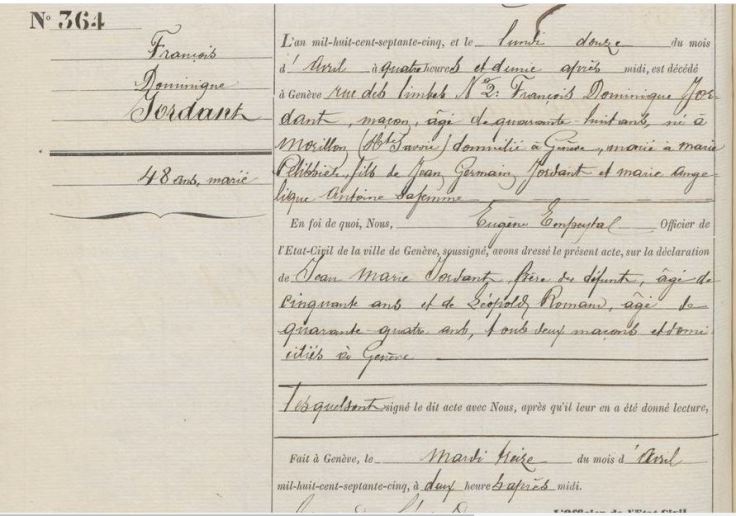 No 364
François
Dominique
Jordant
48 ans, marié
L'an mil-huit-cent-septante-cinq, et le lundi douze du mois
d'Avril à quatre heures et demie après midi, est décédé
à Genève rue des Limbes No 2: François Dominique Jor-
dant, maçon, âgé de quarante-huit ans, né à
Morillon (Hte Savoie) domicilié à Genève, marié à marie
fils de Jean Germain Jordant et marie Ange-
lique Antoine sa femme
En foi de quoi, Nous, Eugène Empeytal Officier de
l'Etat-Civil de la ville de Genève, soussigné, avons dressé le présent acte, sur la déclaration
de Jean Marie Jordant, frère du défunt, âgé de
cinquante ans et de Léopold Romani, âgé de
quarante-quatre ans, tous deux maçons et domi
ciliés à Genève
lesquels ont signé le dit acte avec Nous, après qu'il leur en a été donné lecture,
Fait à Genève, le mardi treize du mois d'Avril
mil-huit-cent-septante-cinq, à deux heures après midi.
L'Officier de l'Etat Civil